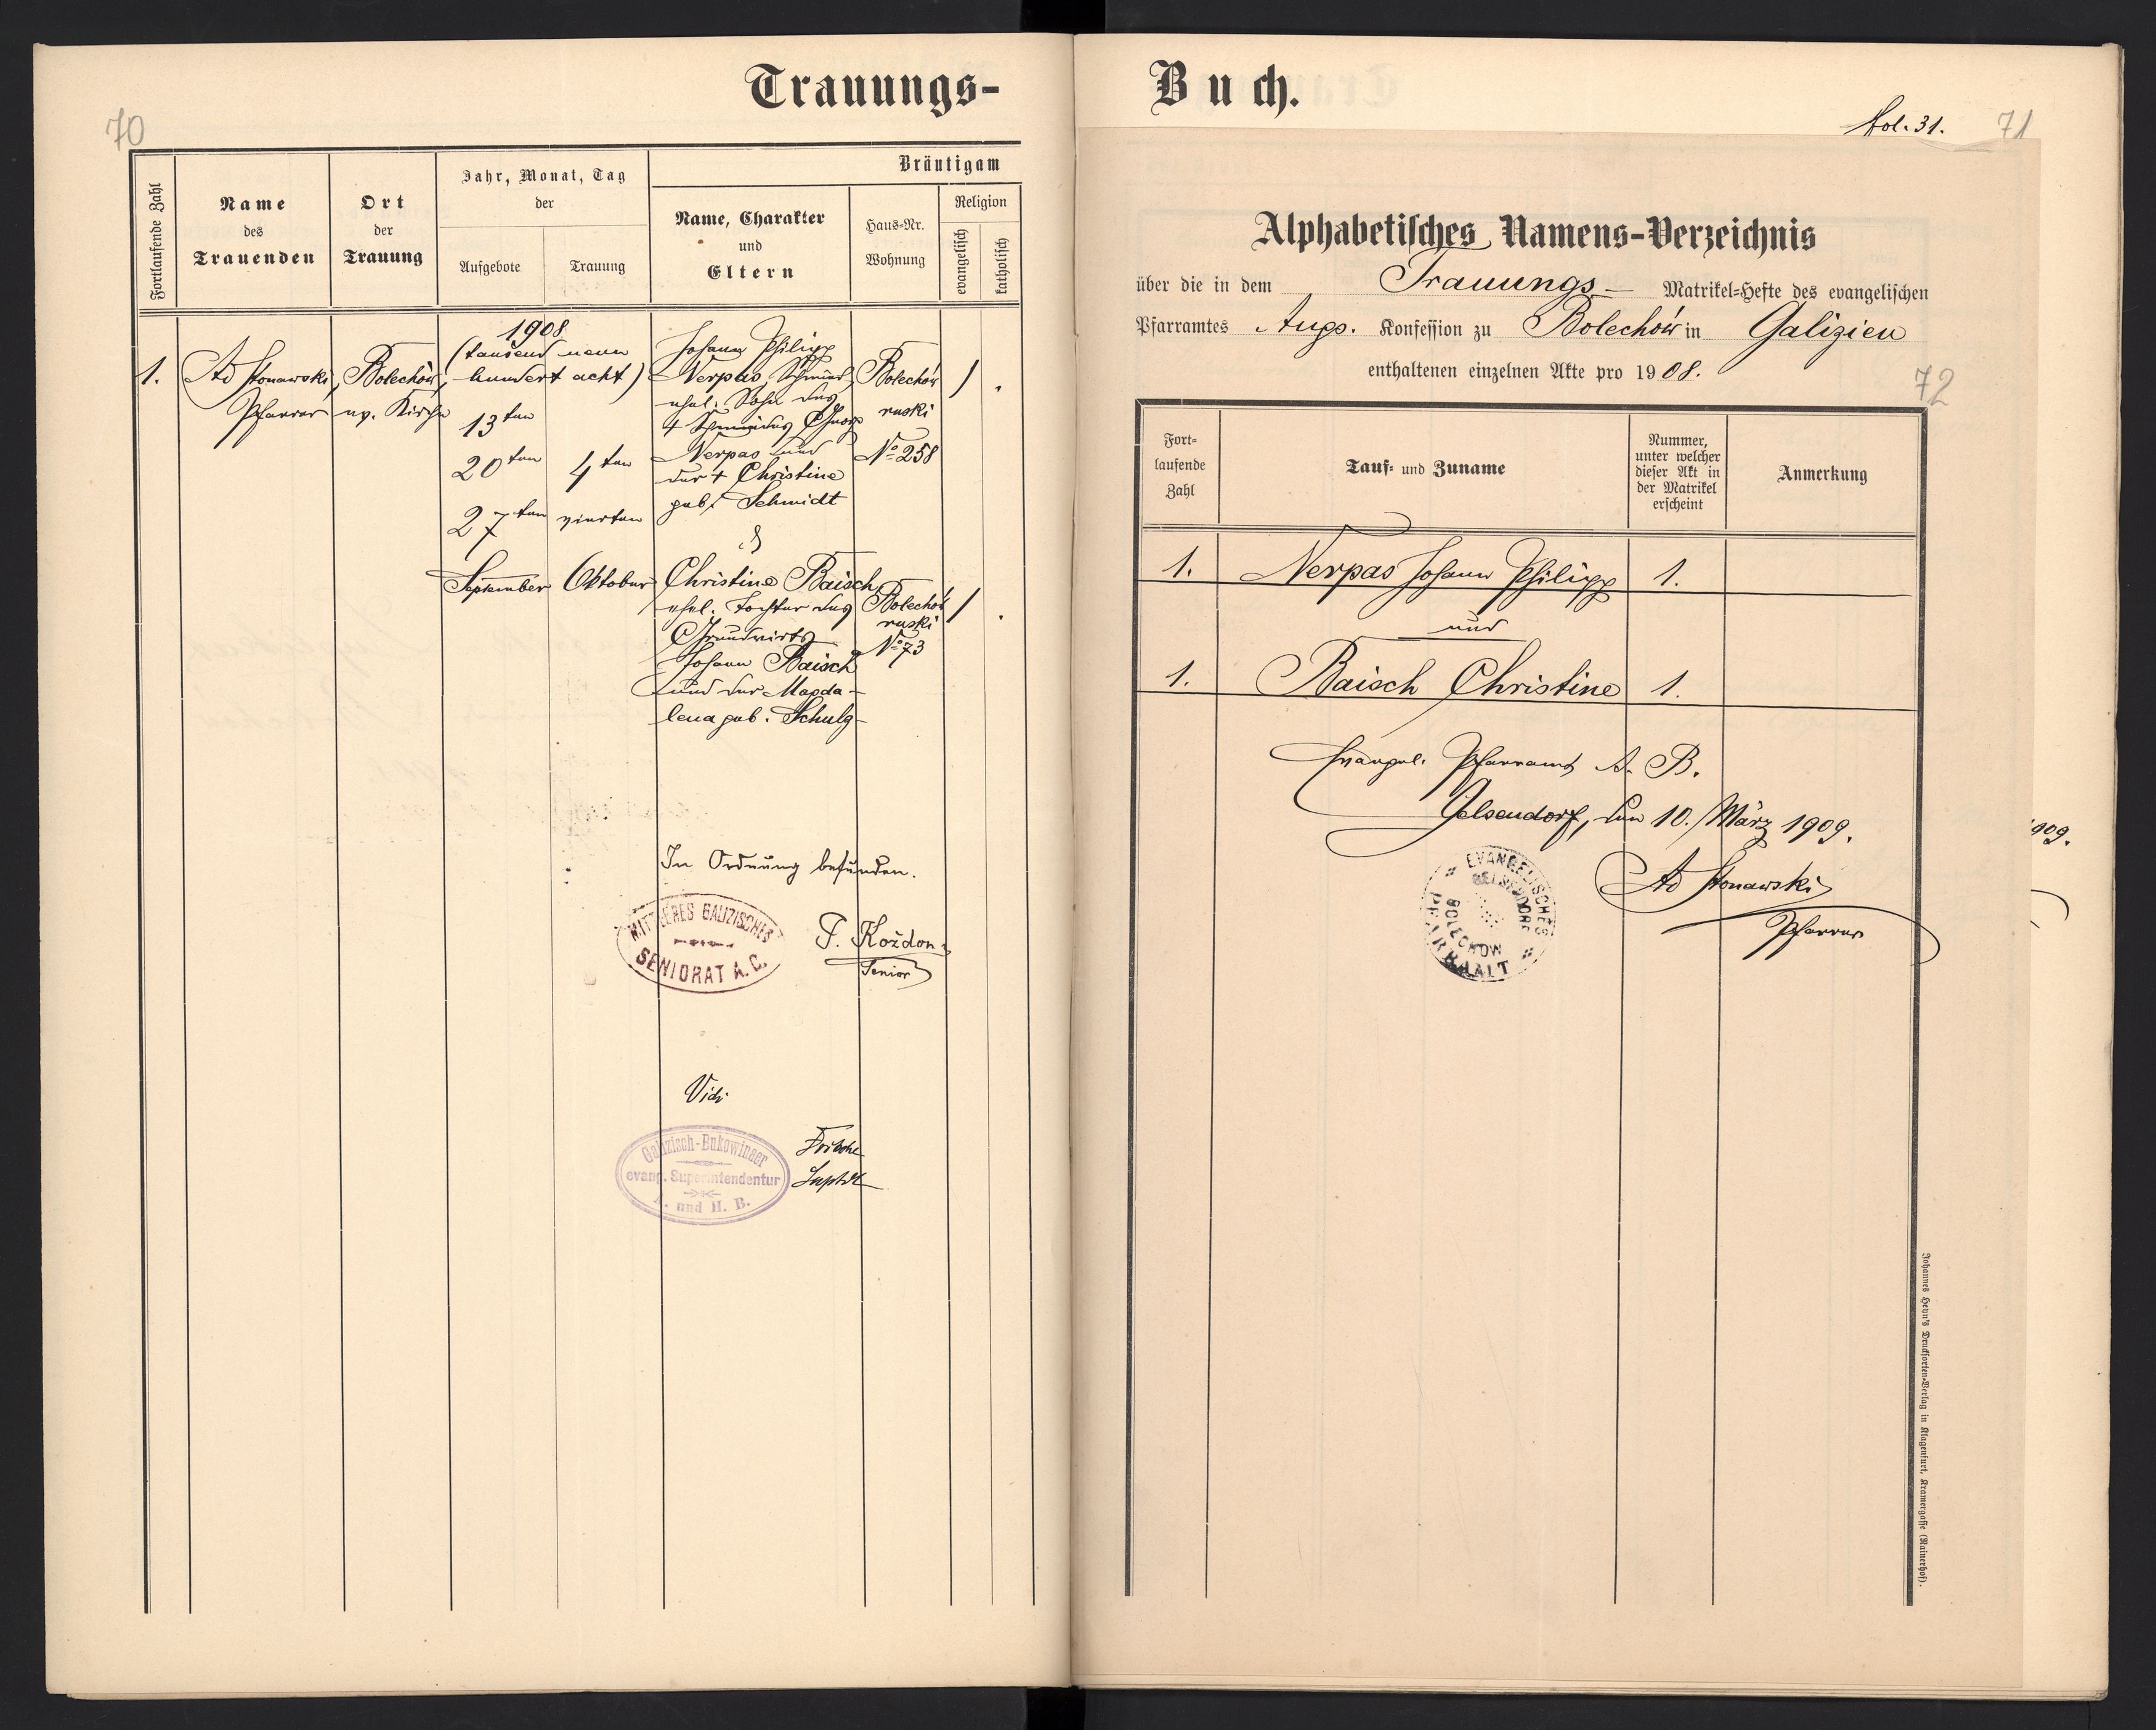 Trauungs-
70
Fortlaufende Zahl
Name
des
Trauenden
Ort
der
Trauung
Jahr, Monat, Tag
der
Aufgebote
Trauung
Bräutigam
Name, Charakter
und
Eltern
Haus-Nr.
Wohnung
Religion
evangelisch
katholisch
1.
Ad Stonawski,
Pfarrer
Bolechów,
ev. Kirche
1908
(tausend neun
hundert acht)
13ten
20ten
27ten
September
4ten
vierten
Oktober
Johann Philipp
Nerpas, Schmied,
ehel. Sohn des
+ Schmiedes Georg
Nerpas und
der + Christine
geb. Schmidt
Bolechów
ruski
No 258
&
Christine Baisch,
ehel. Tochter des
Grundwirts
Johann Baisch
und der Magda-
lena geb. Schulz-
Bolechów
ruski
No 73
In Ordnung befunden.
MITTLERES GALIZISCHES
SENIORAT A. C.
F. Koždon
Senior
Vidi
Galizisch-Bukowinaer
evang. Superintendentur
A. und H. B.
Fritsche
Suptdt
Buch.
fol. 31.
71
Alphabetisches Namens-Verzeichnis
über die in dem Trauungs- Matrikel-Hefte des evangelischen
Pfarramtes Augs. Konfession zu Bolechów in Galizien
enthaltenen einzelnen Akte pro 1908.
72
Fort-
laufende
Zahl
Tauf- und Zuname
Nummer,
unter welcher
dieser Akt in
der Matrikel
erscheint
Anmerkung
1. Nerpas Johann Philipp 1.
und
1. Baisch Christine 1.
Evangel. Pfarramt A. B.
Gelsendorf, den 10. März 1909.
909.
Ad Stonawski
Pfarrer
EVANGELISCHES
GELSENDORF
BOLECHOW
PFARRAMT
Johannes Heyn's Drucksorten-Verlag in Klagenfurt, Kramergasse (Rainerhof).